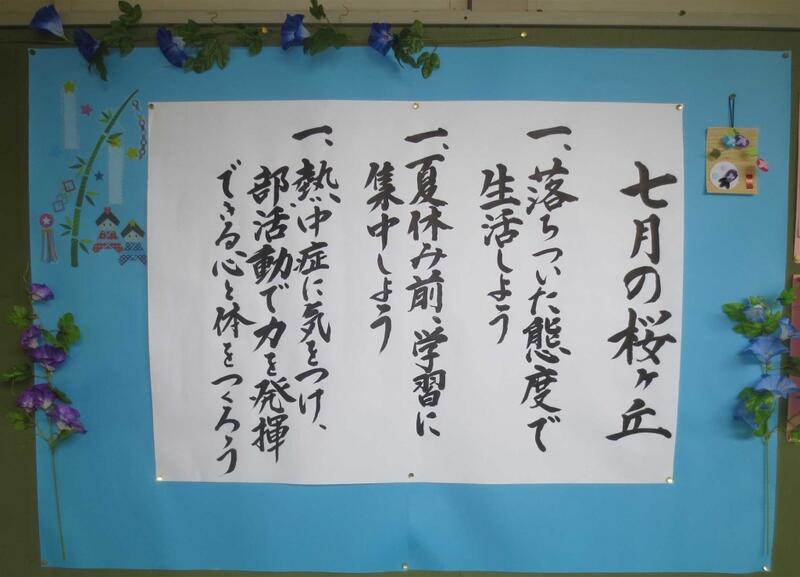 七月の桜ヶ丘
一、落ちついた態度で
生活しよう
一、夏休み前、学習に
集中しよう
一、熱中症に気をつけ、
部活動で力を発揮
できる心と体をつくろう